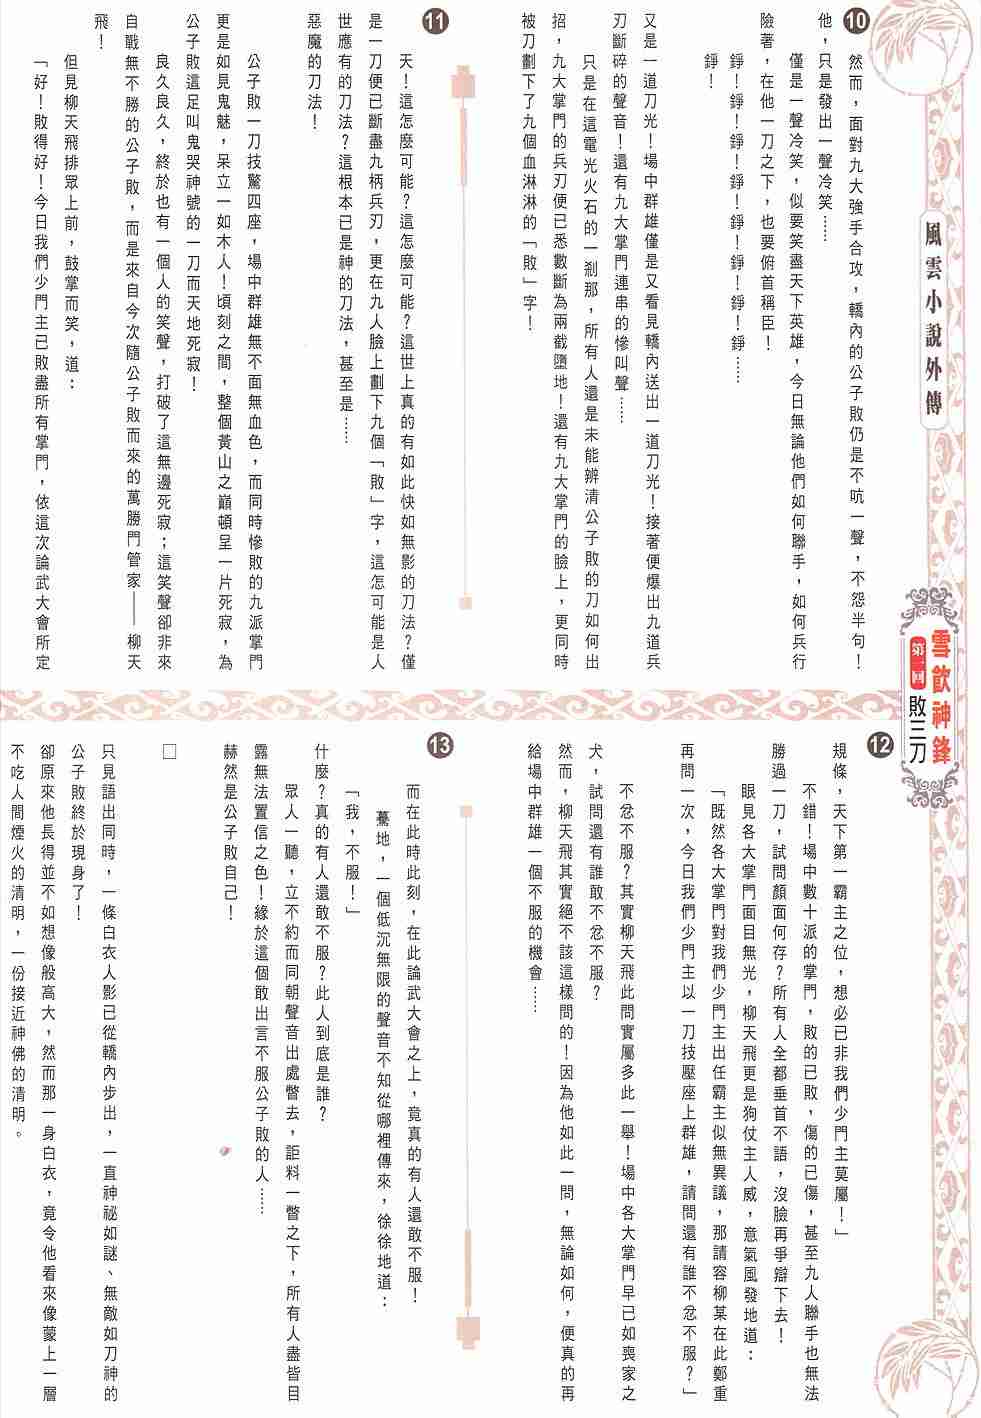 風雲小說外傳
雪飲神鋒
第一回
敗三刀
10
然而，面對九大強手合攻，轎內的公子敗仍是不吭一聲，不怨半句！
他，只是發出一聲冷笑……
僅是一聲冷笑，似要笑盡天下英雄，今日無論他們如何聯手，如何兵行
險著，在他一刀之下，也要俯首稱臣！
錚！錚！錚！錚！錚！錚！錚！錚……
錚！
又是一道刀光！場中群雄僅是又看見轎內送出一道刀光！接著便爆出九道兵
刃斷碎的聲音！還有九大掌門連串的慘叫聲……
只是在這電光火石的一剎那，所有人還是未能辨清公子敗的刀如何出
招，九大掌門的兵刃便已悉數斷為兩截墮地！還有九大掌門的臉上，更同時
被刀劃下了九個血淋淋的「敗」字！
11
天！這怎麼可能？這怎麼可能？這世上真的有如此快如無影的刀法？僅
是一刀便已斷盡九柄兵刃，更在九人臉上劃下九個「敗」字，這怎可能是人
世應有的刀法？這根本已是神的刀法，甚至是……
惡魔的刀法！
公子敗一刀技驚四座，場中群雄無不面無血色，而同時慘敗的九派掌門
更是如見鬼魅，呆立一如木人！頃刻之間，整個黃山之巔頓呈一片死寂，為
公子敗這足叫鬼哭神號的一刀而天地死寂！
良久良久，終於也有一個人的笑聲，打破了這無邊死寂；這笑聲卻非來
自戰無不勝的公子敗，而是來自今次隨公子敗而來的萬勝門管家——柳天
飛！
但見柳天飛排眾上前，鼓掌而笑，道：
「好！敗得好！今日我們少門主已敗盡所有掌門，依這次論武大會所定
12
規條，天下第一霸主之位，想必已非我們少門主莫屬！」
不錯！場中數十派的掌門，敗的已敗，傷的已傷，甚至九人聯手也無法
勝過一刀，試問顏面何存？所有人全都垂首不語，沒臉再爭辯下去！
眼見各大掌門面目無光，柳天飛更是狗仗主人威，意氣風發地道：
「既然各大掌門對我們少門主出任霸主似無異議，那請容柳某在此鄭重
再問一次，今日我們少門主以一刀技壓座上群雄，請問還有誰不忿不服？」
不忿不服？其實柳天飛此問實屬多此一舉！場中各大掌門早已如喪家之
犬，試問還有誰敢不忿不服？
然而，柳天飛其實絕不該這樣問的！因為他如此一問，無論如何，便真的再
給場中群雄一個不服的機會……
13
而在此時此刻，在此論武大會之上，竟真的有人還敢不服！
驀地，一個低沉無限的聲音不知從哪裡傳來，徐徐地道：
「我，不服！」
什麼？真的有人還敢不服？此人到底是誰？
眾人一聽，立不約而同朝聲音出處瞥去，詎料一瞥之下，所有人盡皆目
露無法置信之色！緣於這個敢出言不服公子敗的人……
赫然是公子敗自己！
□
只見語出同時，一條白衣人影已從轎內步出，一直神祕如謎、無敵如刀神的
公子敗終於現身了！
卻原來他長得並不如想像般高大，然而那一身白衣，竟令他看來像蒙上一層
不吃人間煙火的清明，一份接近神佛的清明。